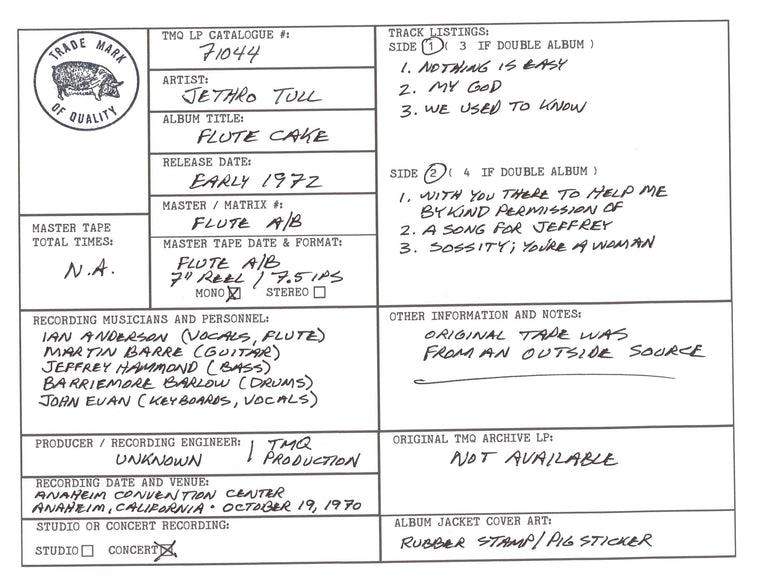 TRADE MARK
OF QUALITY
TMQ LP CATALOGUE #:
71044
ARTIST:
JETHRO TULL
ALBUM TITLE:
FLUTE CAKE
RELEASE DATE:
EARLY 1972
MASTER / MATRIX #:
FLUTE A/B
MASTER TAPE
TOTAL TIMES:
N.A.
MASTER TAPE DATE & FORMAT:
FLUTE A/B
7" REEL / 7.5 IPS
MONO STEREO
TRACK LISTINGS:
SIDE 1 ( 3 IF DOUBLE ALBUM )
1. NOTHING IS EASY
2. MY GOD
3. WE USED TO KNOW
SIDE 2 ( 4 IF DOUBLE ALBUM )
1. WITH YOU THERE TO HELP ME
BY KIND PERMISSION OF
2. A SONG FOR JEFFREY
3. SOSSITY; YOU'RE A WOMAN
RECORDING MUSICIANS AND PERSONNEL:
IAN ANDERSON (VOCALS, FLUTE)
MARTIN BARRE (GUITAR)
JEFFREY HAMMOND (BASS)
BARRIEMORE BARLOW (DRUMS)
JOHN EVAN (KEYBOARDS, VOCALS)
OTHER INFORMATION AND NOTES:
ORIGINAL TAPE WAS
FROM AN OUTSIDE SOURCE
PRODUCER / RECORDING ENGINEER:
UNKNOWN / TMQ
PRODUCTION
ORIGINAL TMQ ARCHIVE LP:
NOT AVAILABLE
RECORDING DATE AND VENUE:
ANAHEIM CONVENTION CENTER
ANAHEIM, CALIFORNIA · OCTOBER 19, 1970
STUDIO OR CONCERT RECORDING:
STUDIO CONCERT
ALBUM JACKET COVER ART:
RUBBER STAMP/PIG STICKER